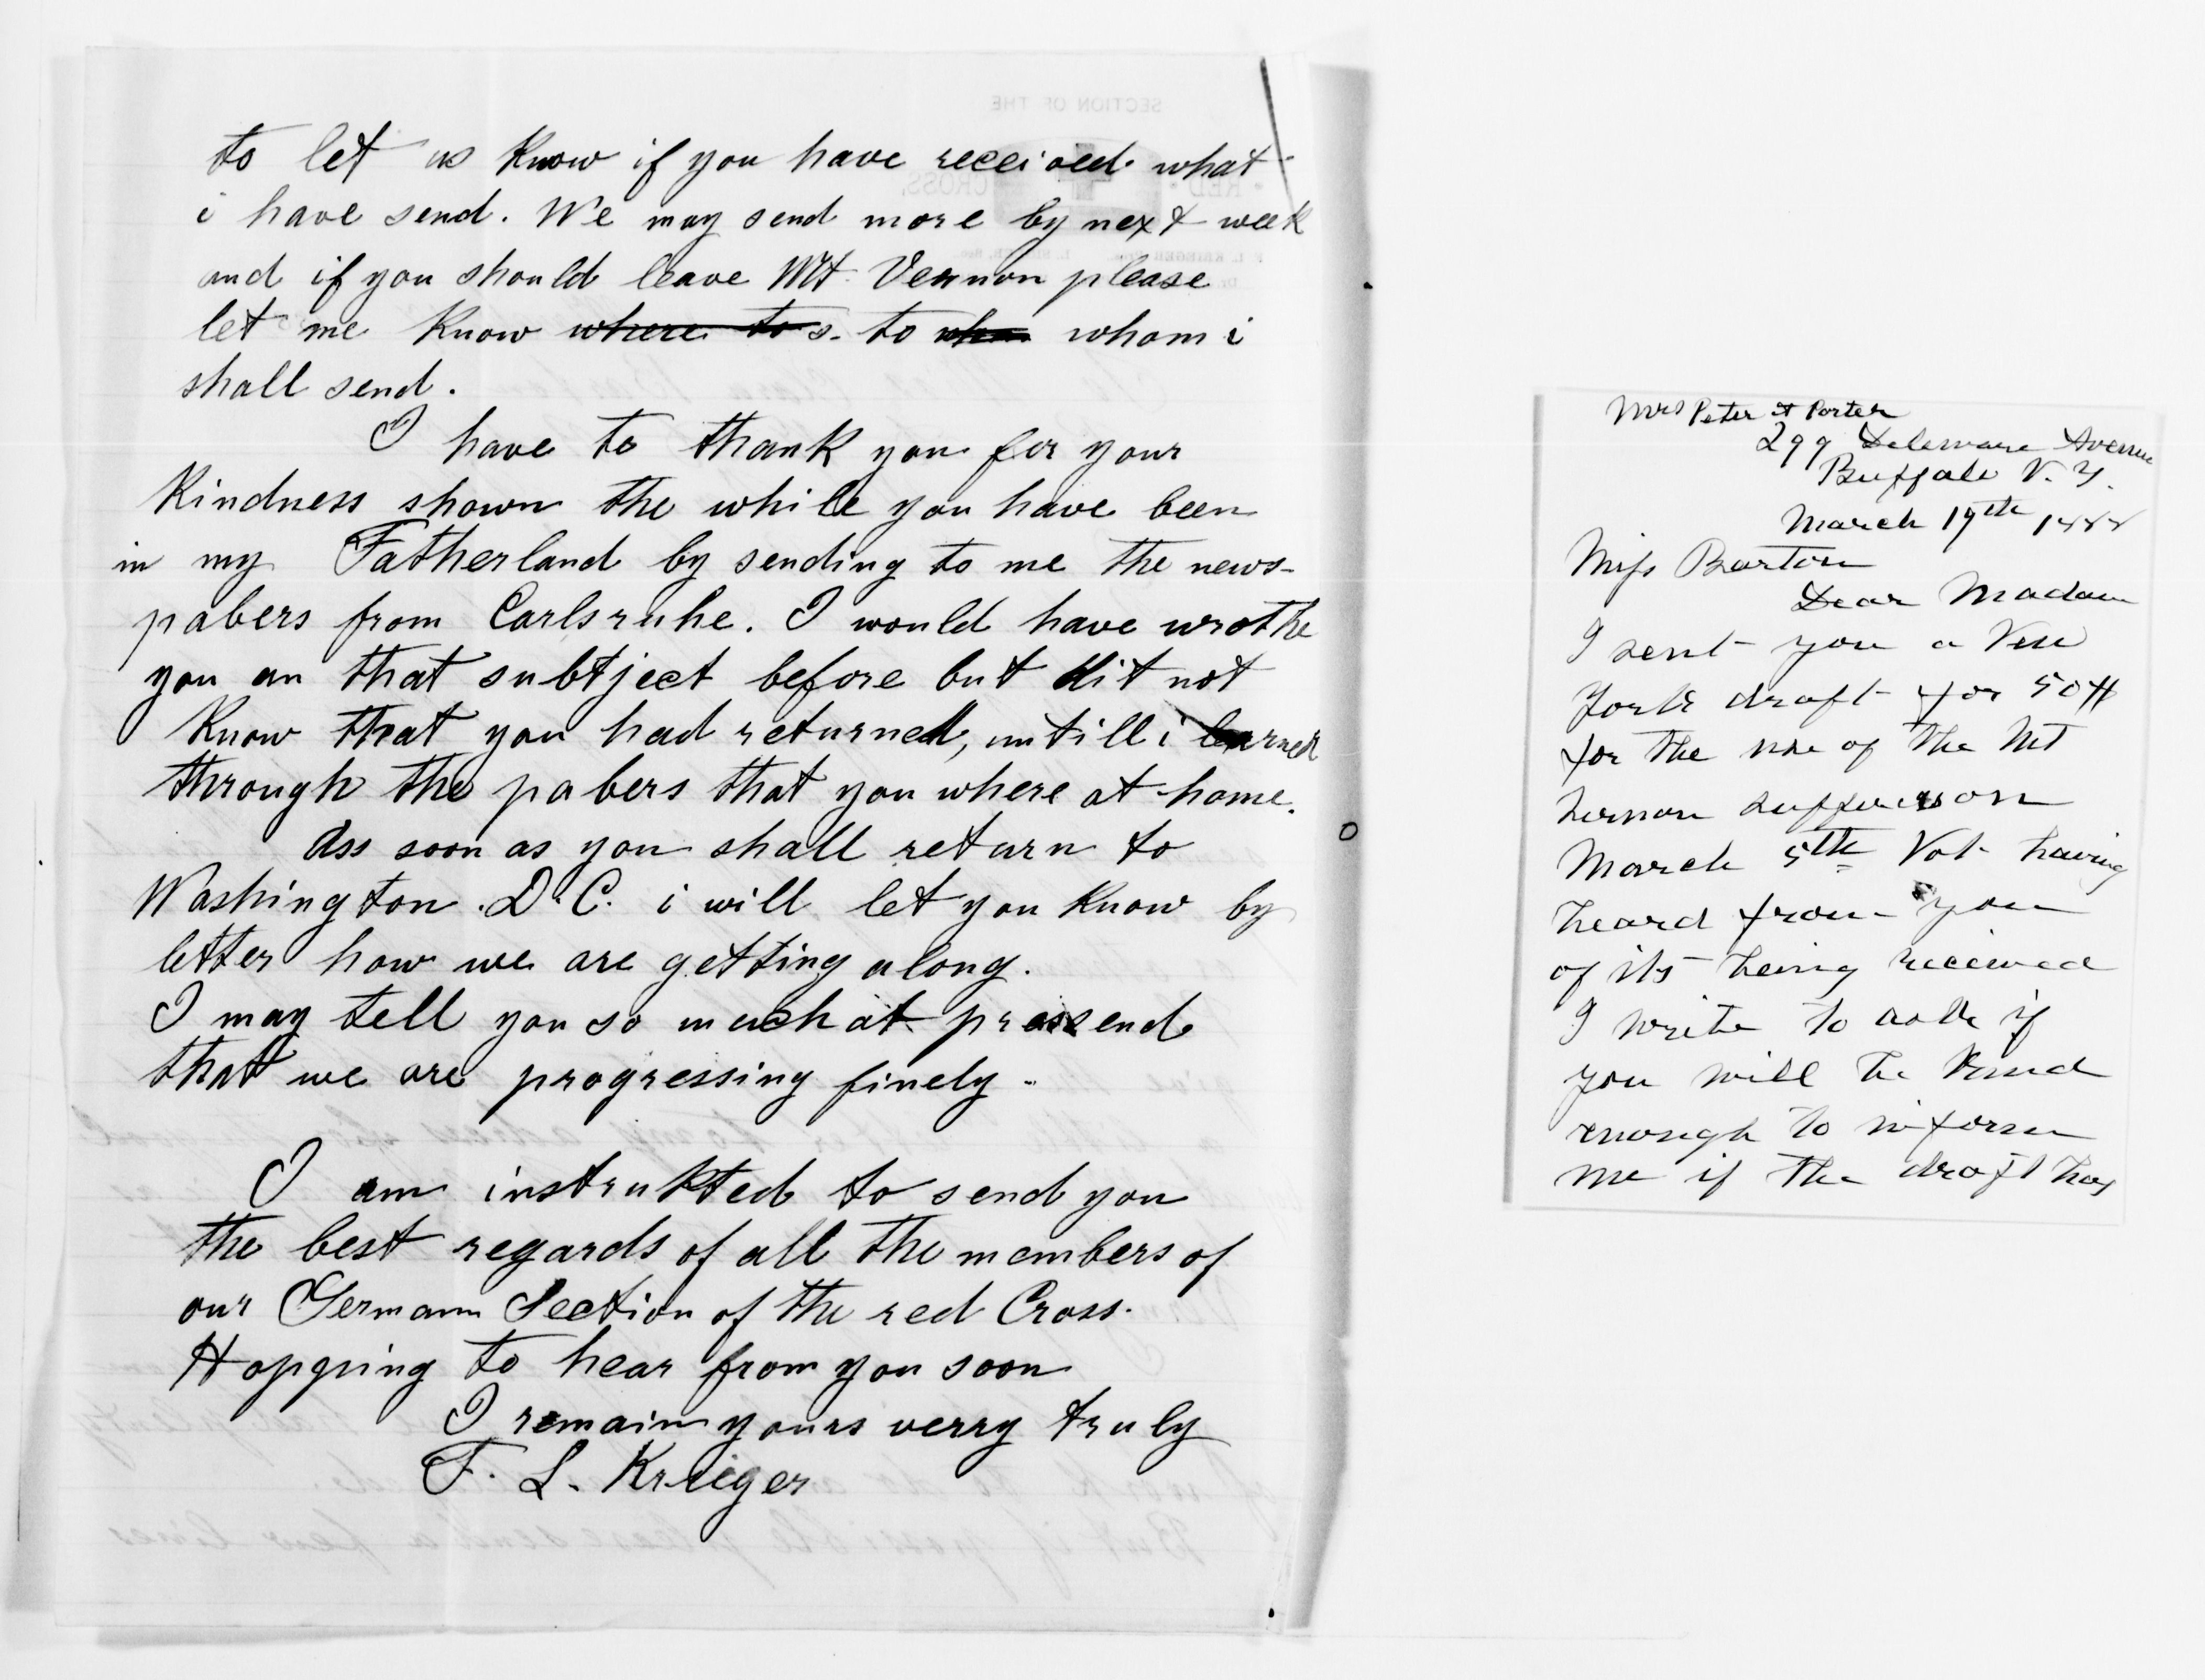 to let us know if you have received what
i have send. We may send more by next week
and if you should leave Mt. Vernon please
let me know where to s. to whom i
shall send.
I have to thank you for your
Kindness shown the while you have been
in my Fatherland by sending to me the news-
pabers from Carlsruhe. I would have wrothe
you an that subtject before but dit not
know that you had returned, untill i learned
through the pabers that you where at home.
Ass soon as you shall return to
Washington D.C. i will let you know by
letter how we are getting along.
I may tell you so much at presend
that we are progressing finely.
I am instrukted to send you
the best regards of all the members of
our Germann Section of the red Cross.
Hopping to hear from you soon
I remain yours verry truly
F. L. Krieger
Mrs Peter A Porter
299 Delaware Avenue
Buffalo N. Y.
March 19th 1888
Miss Barton
Dear Madam
I sent you a New
York draft for 50$
for the use of the Mt
Vernon sufferers on
March 5th Not having
heard from you
of its being received
I write to ask if
you will be kind
enough to inform
me if the draft has
SECTION OF THE
RED CROSS,